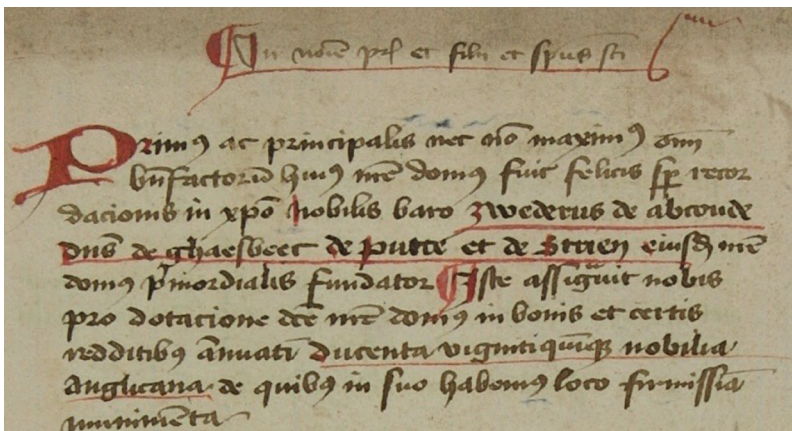 In noie pris et filii et spus sci
Primus ac principalis nec no maximus oim
bnfactorum huius nre domus fuit felicis sp recor
dacionis in xpo nobilis baro zwederus de abcoude
dns de ghaesbeec de putte et de Strien eiusd nre
domus pmordialis fundator Iste assignavit nobis
pro dotacione dce nre domus in bonis et certis
redditibus annuati ducenta vigintiquiqz nobilia
Anglicana de quibus in suo habemus loco firmissia
munimeta